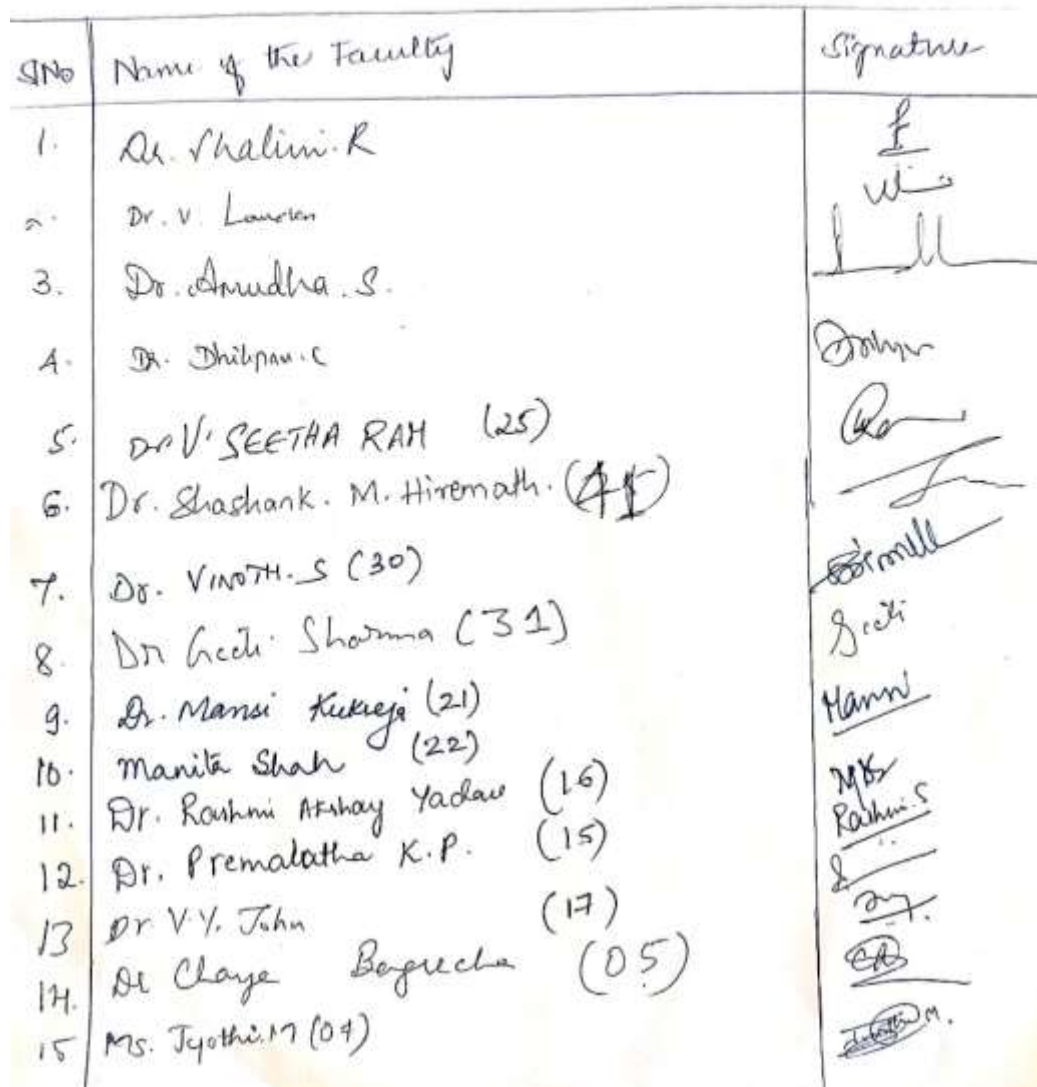 SlNo Name of the Faculty Signature
1. Dr. Shalini. R
2. Dr. V.
3. Dr. Amudha. S.
4. Dr. Dhilipan. C
5. Dr V. SEETHA RAM (25)
6. Dr. Shashank. M. Hiremath.
7. Dr. VINOTH. S (30)
8. Dr Geeti Sharma (31) Geeti
9. Dr. Mansi Kukreja (21) Mansi
10. Manita Shah (22)
11. Dr. Rashmi Akshay Yadav (16) Rashmi.S
12. Dr. Premalatha K.P. (15)
13 Dr V.Y. John (17)
14. Dr Chaya Bagrecha (05)
15 Ms. Jyothi.M (04)